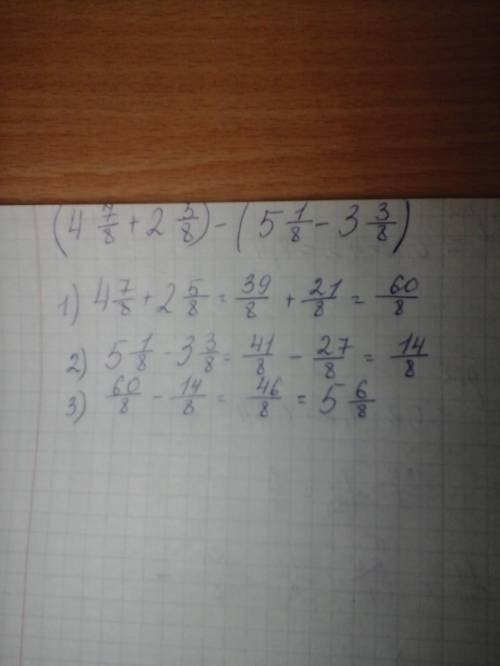 (4 7/8 + 2 5/8) - (5 1/8 - 3 3/8)
1) 4 7/8 + 2 5/8 = 39/8 + 21/8 = 60/8
2) 5 1/8 - 3 3/8 = 41/8 - 27/8 = 14/8
3) 60/8 - 14/8 = 46/8 = 5 6/8